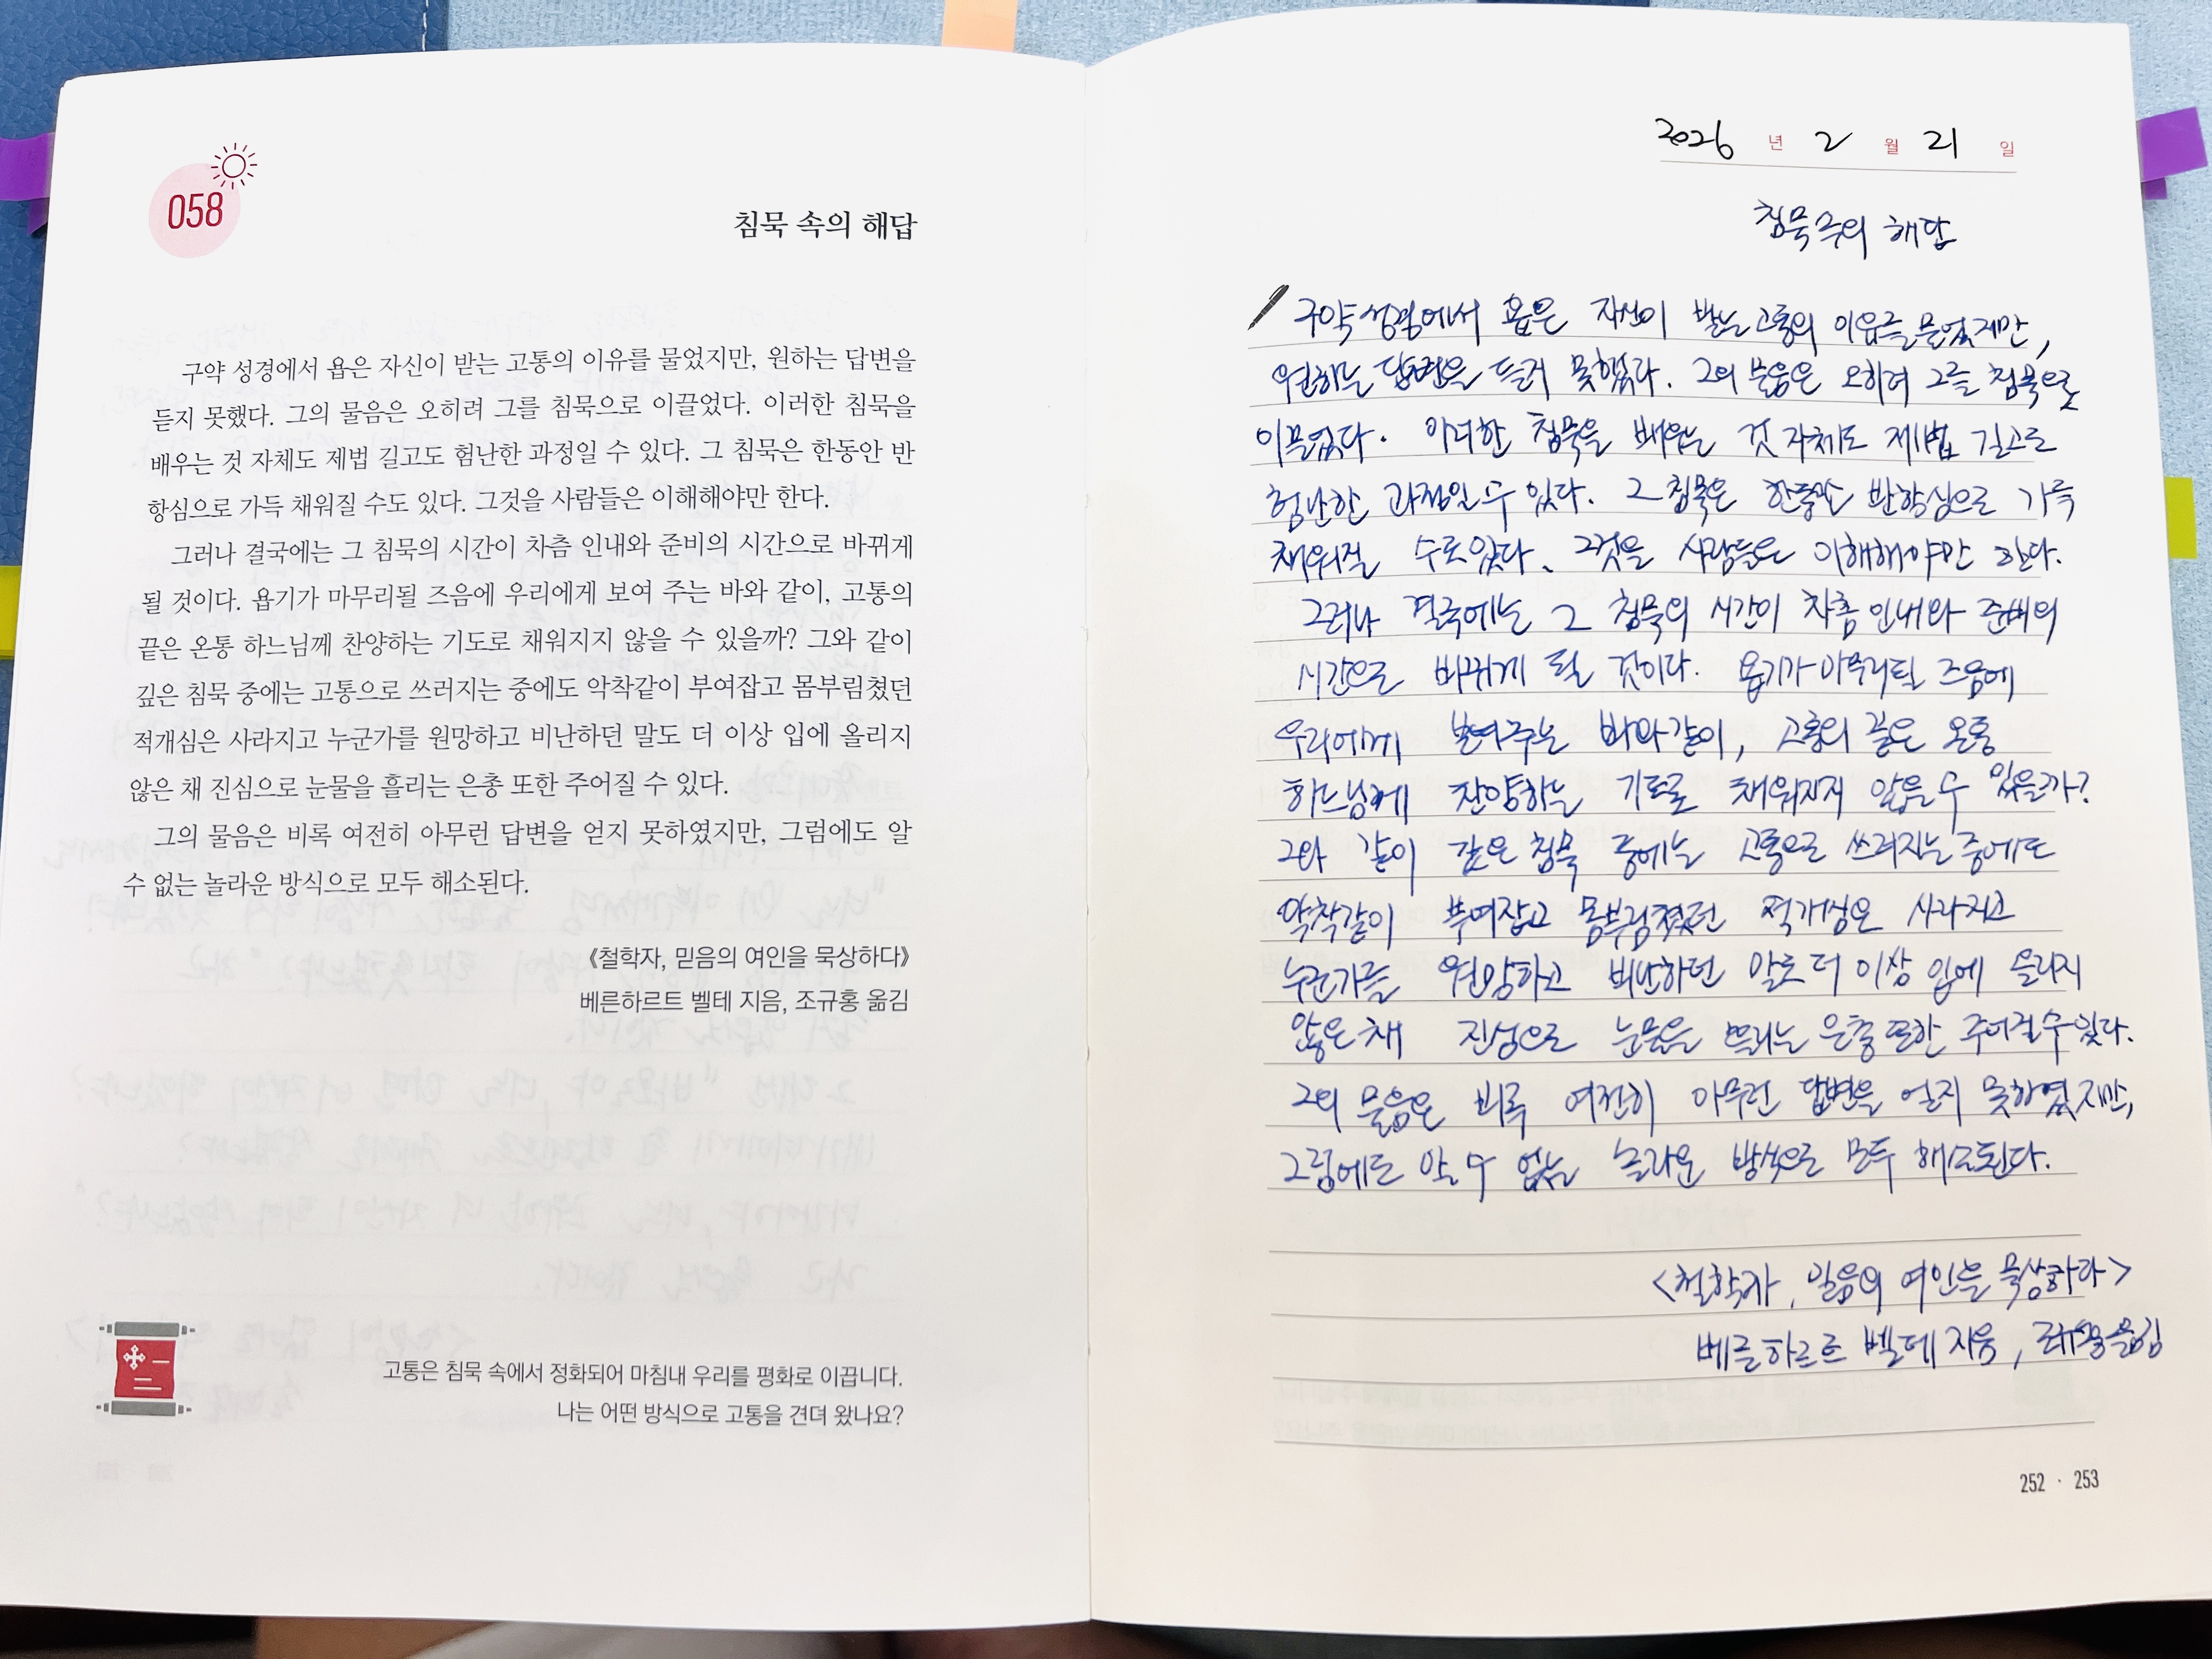 058
침묵 속의 해답
구약 성경에서 욥은 자신이 받는 고통의 이유를 물었지만, 원하는 답변을
듣지 못했다. 그의 물음은 오히려 그를 침묵으로 이끌었다. 이러한 침묵을
배우는 것 자체도 제법 길고도 험난한 과정일 수 있다. 그 침묵은 한동안 반
항심으로 가득 채워질 수도 있다. 그것을 사람들은 이해해야만 한다.
그러나 결국에는 그 침묵의 시간이 차츰 인내와 준비의 시간으로 바뀌게
될 것이다. 욥기가 마무리될 즈음에 우리에게 보여 주는 바와 같이, 고통의
끝은 온통 하느님께 찬양하는 기도로 채워지지 않을 수 있을까? 그와 같이
깊은 침묵 중에는 고통으로 쓰러지는 중에도 악착같이 부여잡고 몸부림쳤던
적개심은 사라지고 누군가를 원망하고 비난하던 말도 더 이상 입에 올리지
않은 채 진심으로 눈물을 흘리는 은총 또한 주어질 수 있다.
그의 물음은 비록 여전히 아무런 답변을 얻지 못하였지만, 그럼에도 알
수 없는 놀라운 방식으로 모두 해소된다.
《철학자, 믿음의 여인을 묵상하다》
베른하르트 벨테 지음, 조규홍 옮김
고통은 침묵 속에서 정화되어 마침내 우리를 평화로 이끕니다.
나는 어떤 방식으로 고통을 견뎌 왔나요?
2026 년 2 월 21 일
침묵 속의 해답
구약 성경에서 욥은 자신이 받는 고통의 이유를 물었지만,
원하는 답변을 듣지 못했다. 그의 물음은 오히려 그를 침묵으로
이끌었다. 이러한 침묵을 배우는 것 자체도 제법 길고도
험난한 과정일 수 있다. 그 침묵은 한동안 반항심으로 가득
채워질 수도 있다. 그것을 사람들은 이해해야만 한다.
그러나 결국에는 그 침묵의 시간이 차츰 인내와 준비의
시간으로 바뀌게 될 것이다. 욥기가 마무리될 즈음에
우리에게 보여주는 바와 같이, 고통의 끝은 온통
하느님께 찬양하는 기도로 채워지지 않을 수 있을까?
그와 같이 깊은 침묵 중에는 고통으로 쓰러지는 중에도
악착같이 부여잡고 몸부림쳤던 적개심은 사라지고
누군가를 원망하고 비난하던 말도 더 이상 입에 올리지
않은 채 진심으로 눈물을 흘리는 은총 또한 주어질 수 있다.
그의 물음은 비록 여전히 아무런 답변을 얻지 못하였지만,
그럼에도 알 수 없는 놀라운 방식으로 모두 해소된다.
<철학자, 믿음의 여인을 묵상하다>
베른하르트 벨테 지음, 조규홍 옮김
252 · 253